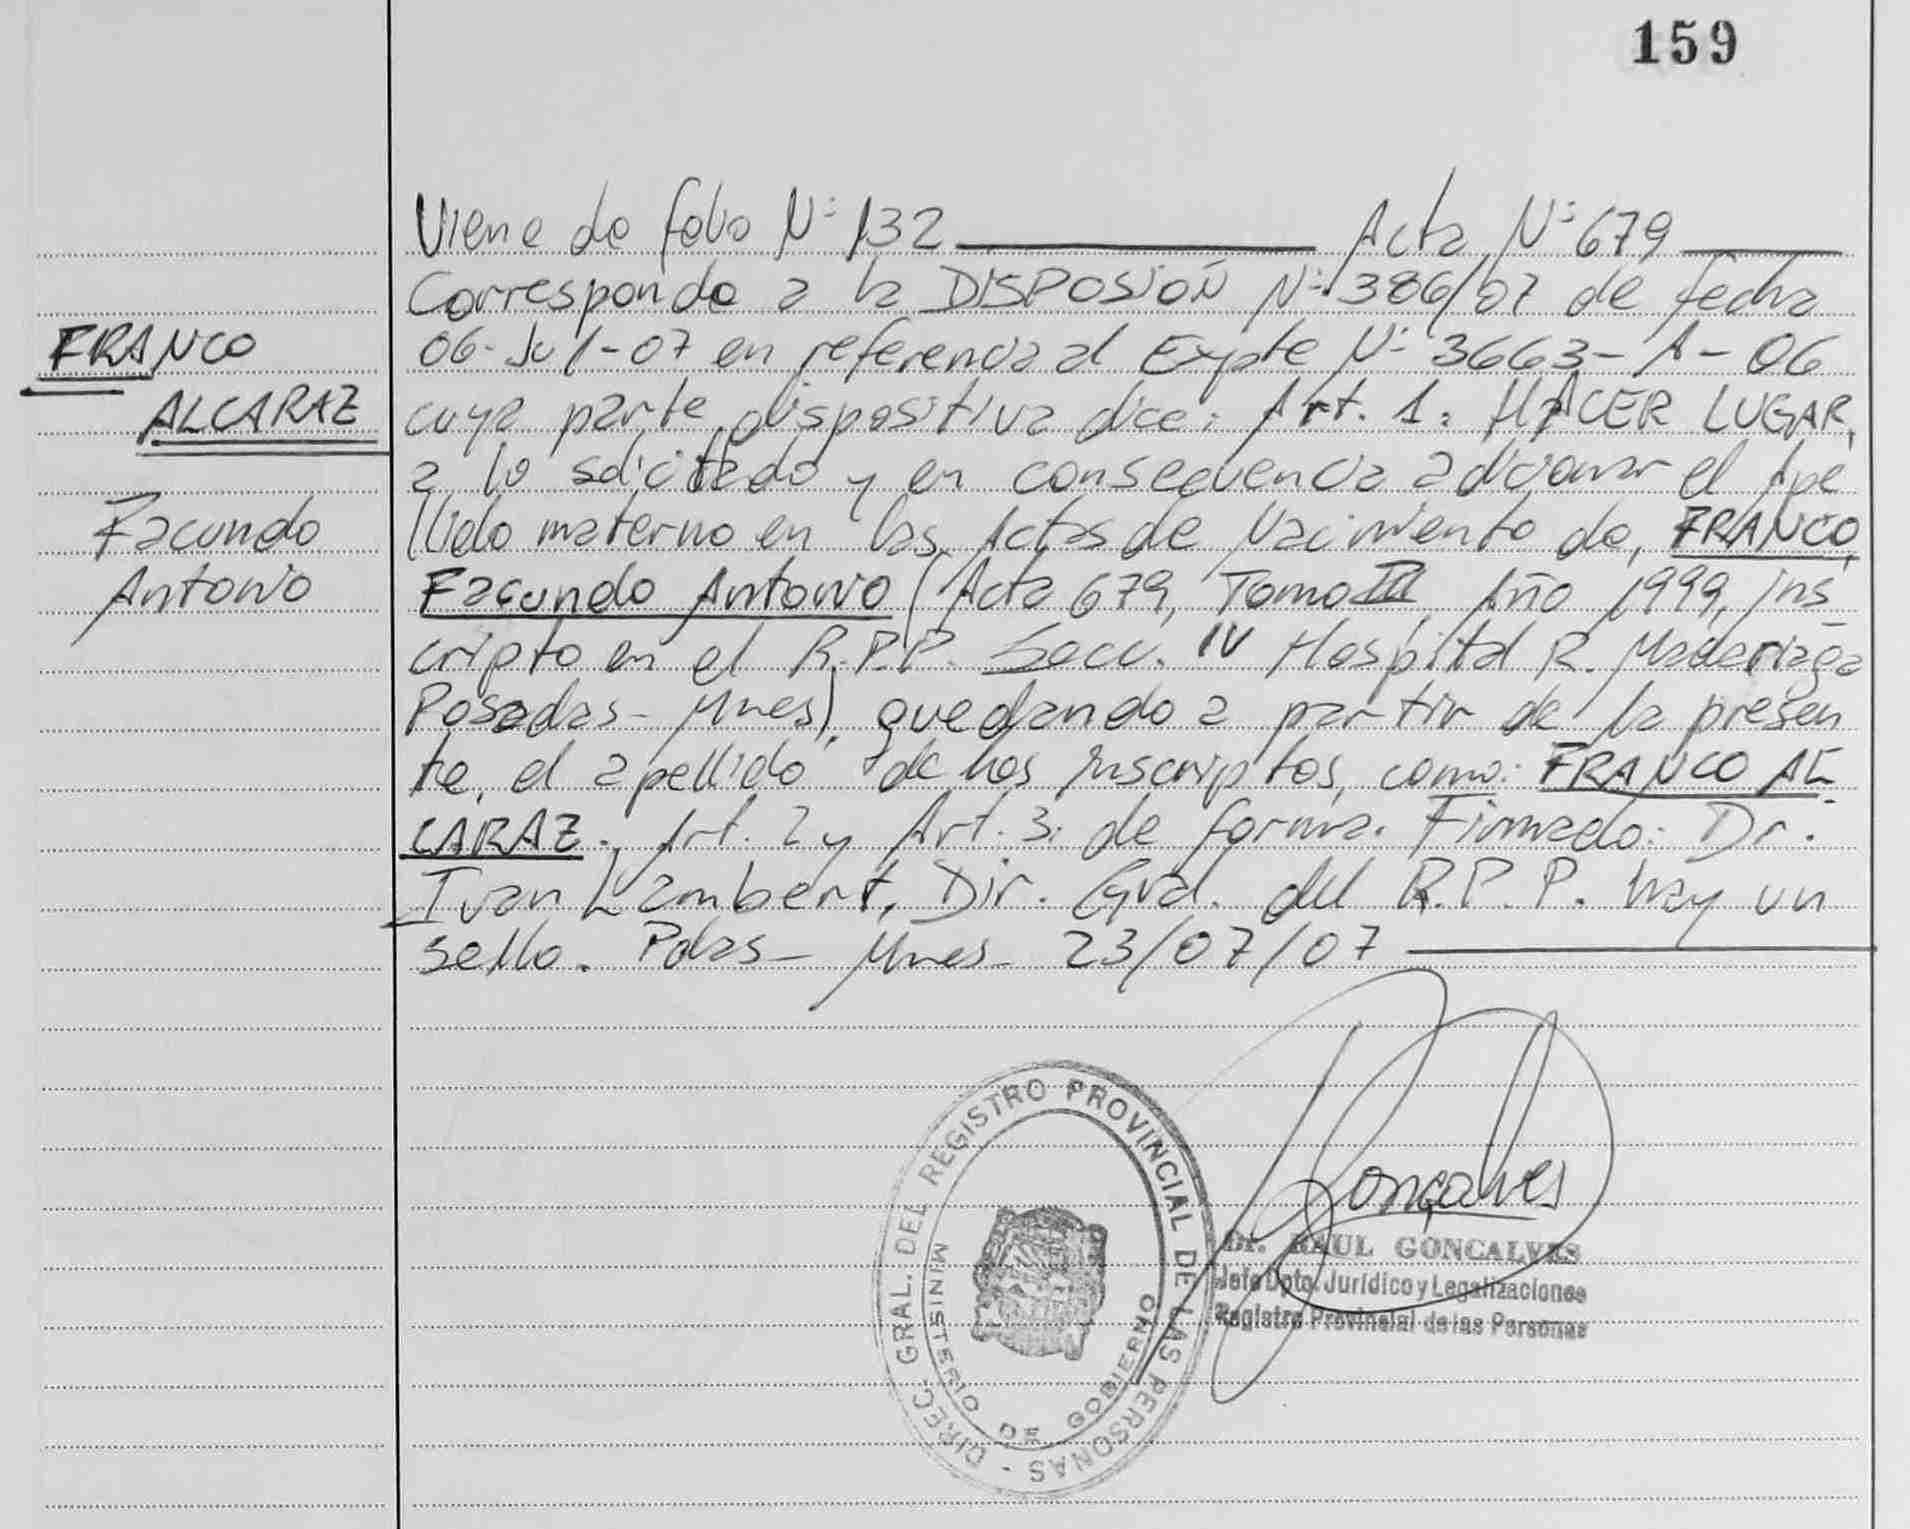 159
Viene de folio Nº 132 Acta Nº 679
Corresponde a la DISPOSIÓN Nº 386/07 de fecha
06-Jul-07 en referencia al Expte Nº 3663-A-06
cuya parte dispositiva dice: Art. 1: HACER LUGAR,
a lo solicitado y en consecuencia adicionar el Ape
llido materno en las Actas de Nacimiento de, FRANCO,
Facundo Antonio (Acta 679, Tomo III, Año 1999, ins_
cripto en el R.P.P. Secc. IV Hospital R. Madariaga
Posadas- Mnes), quedando a partir de la presen
te, el apellido de los inscriptos, como: FRANCO AL_
CARAZ. Art. 2 y Art. 3: de forma. Firmado: Dr.
Ivan Lambert, Dir. Gral. del R.P.P. hay un
sello. Pdas- Mnes- 23/07/07
FRANCO
ALCARAZ
Facundo
Antonio
DIREC. GRAL. DEL REGISTRO PROVINCIAL DE LAS PERSONAS -
MINISTERIO DE GOBIERNO
Gonçalves
Dr. RAUL GONCALVES
Jefe Dpto. Jurídico y Legalizaciones
Registro Provincial de las Personas